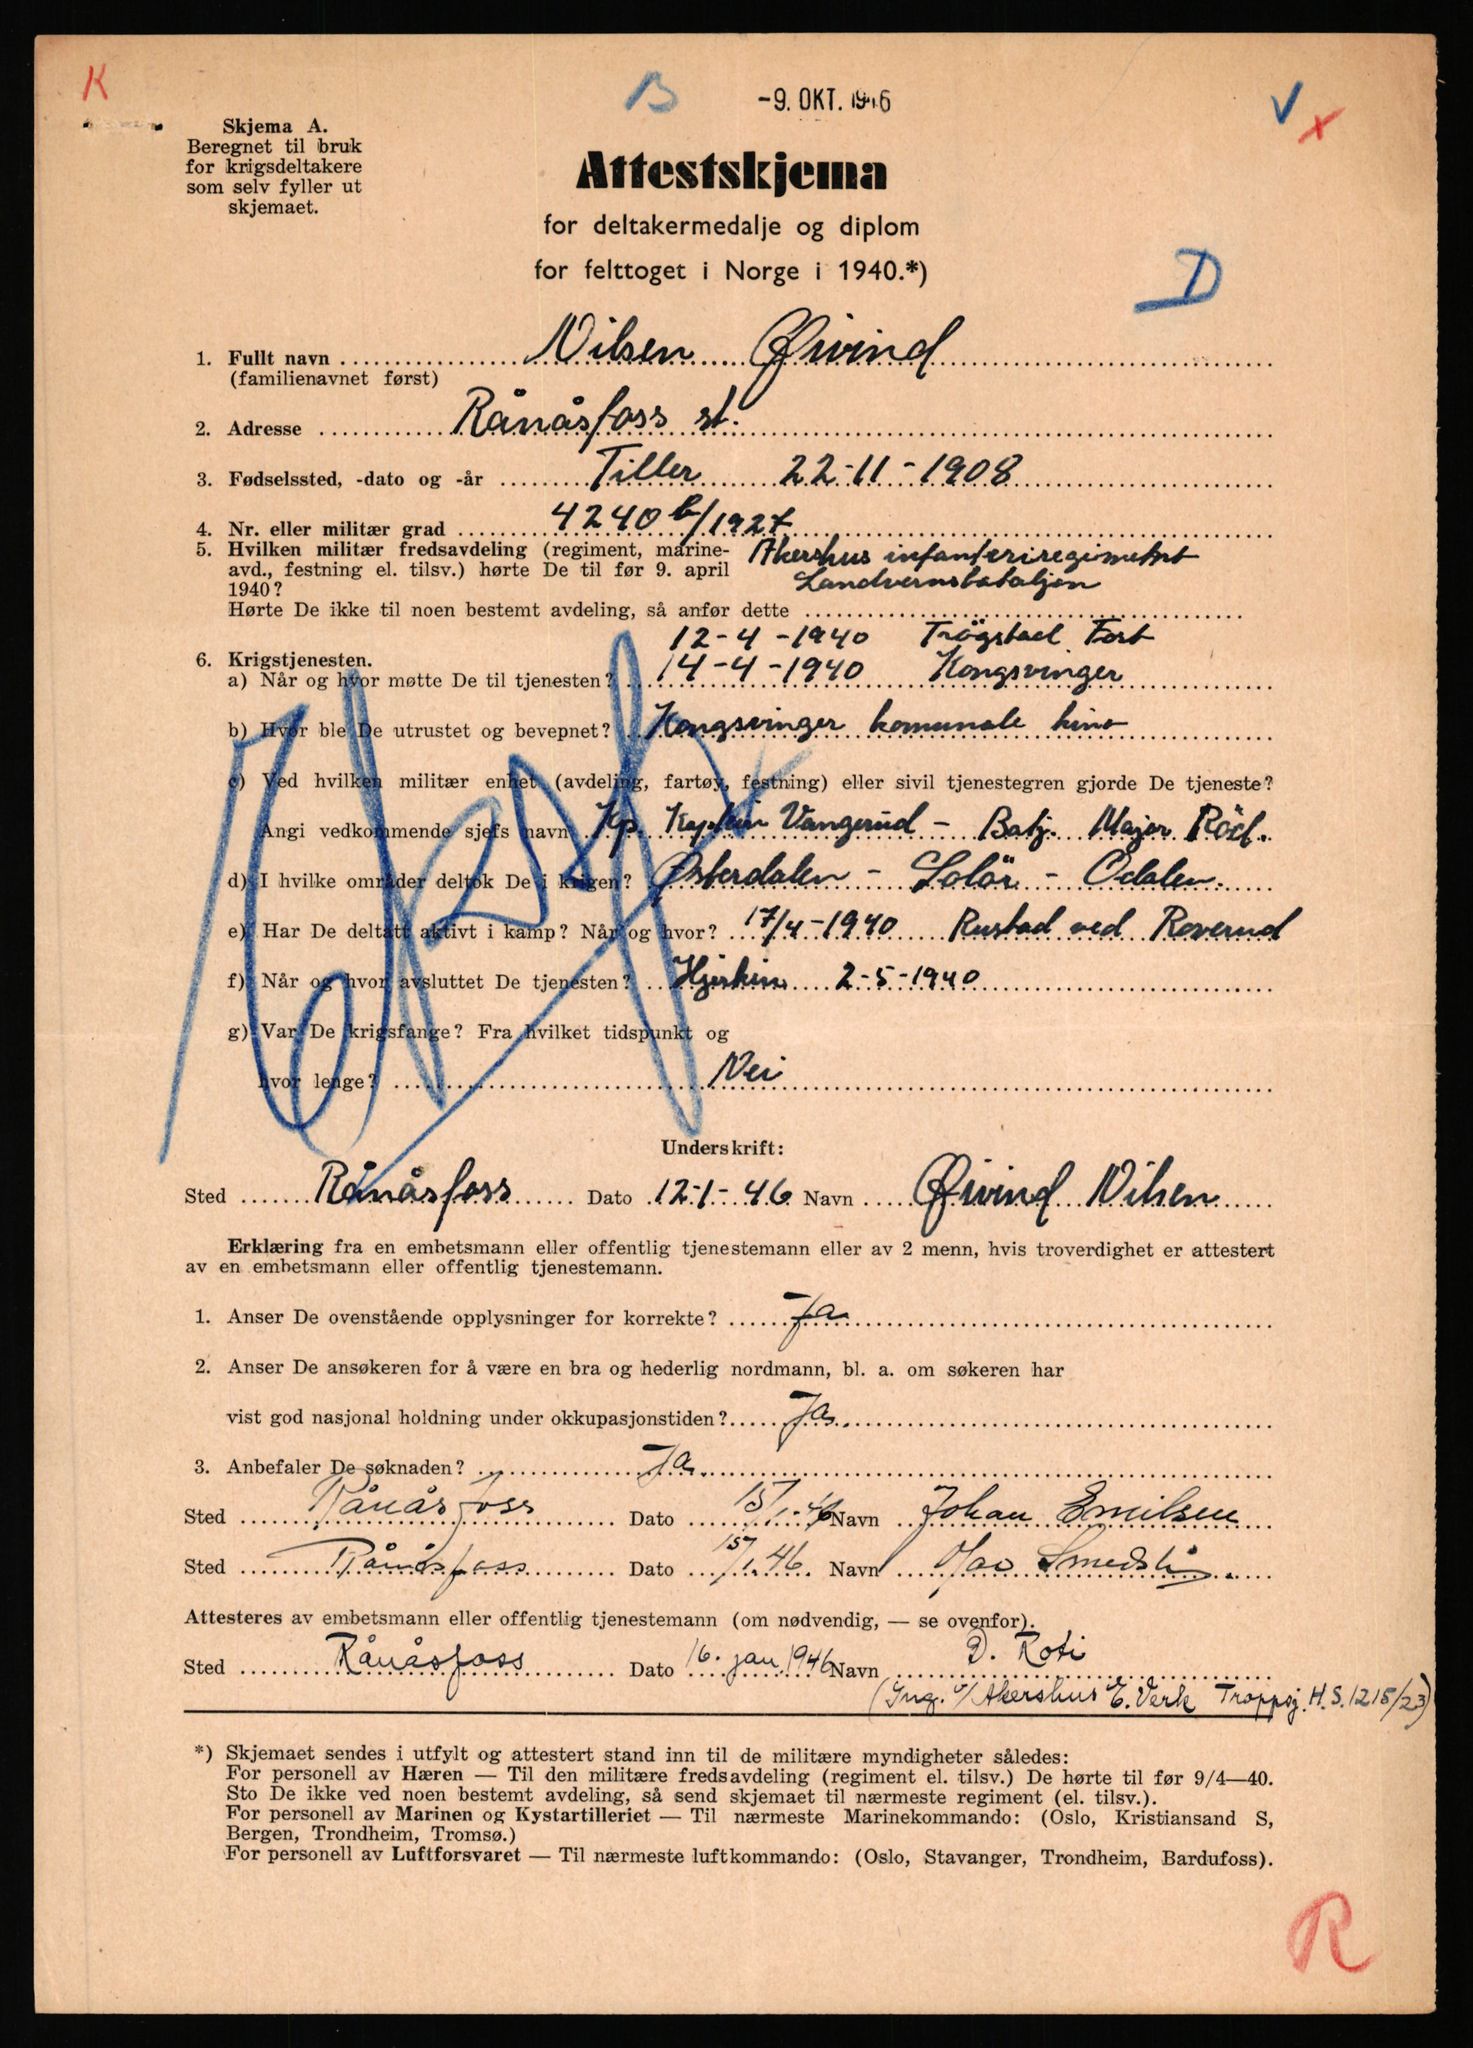 K
B
-9. OKT. 1946
V x
Skjema A.
Beregnet til bruk
for krigsdeltakere
som selv fyller ut
skjemaet.
Attestskjema
for deltakermedalje og diplom
for felttoget i Norge i 1940.*)
D
1. Fullt navn Nilsen Øivind
(familienavnet først)
2. Adresse Rånåsfoss st.
3. Fødselssted, -dato og -år Tiller 22-11-1908
4. Nr. eller militær grad 4240 b/1927
5. Hvilken militær fredsavdeling (regiment, marine- Akershus infanteriregiment
avd., festning el. tilsv.) hørte De til før 9. april Landvernsbataljon
1940?
Hørte De ikke til noen bestemt avdeling, så anfør dette
12-4-1940 Trögstad Fort
6. Krigstjenesten.
a) Når og hvor møtte De til tjenesten? 14-4-1940 Kongsvinger
b) Hvor ble De utrustet og bevepnet? Kongsvinger komunale kino
c) Ved hvilken militær enhet (avdeling, fartøy, festning) eller sivil tjenestegren gjorde De tjeneste?
Angi vedkommende sjefs navn Kp. Kaptein Vangerud - Batj. Major Röd.
d) I hvilke områder deltok De i krigen? Østerdalen - Solör - Odalen.
e) Har De deltatt aktivt i kamp? Når og hvor? 17/4-1940 Rustad ved Roverud
f) Når og hvor avsluttet De tjenesten? Hjerkin 2-5-1940
g) Var De krigsfange? Fra hvilket tidspunkt og
hvor lenge? Nei
Underskrift:
Sted Rånåsfoss Dato 12-1-46 Navn Øivind Nilsen
Erklæring fra en embetsmann eller offentlig tjenestemann eller av 2 menn, hvis troverdighet er attestert
av en embetsmann eller offentlig tjenestemann.
1. Anser De ovenstående opplysninger for korrekte? Ja
2. Anser De ansøkeren for å være en bra og hederlig nordmann, bl. a. om søkeren har
vist god nasjonal holdning under okkupasjonstiden? Ja.
3. Anbefaler De søknaden? Ja.
Sted Rånåsfoss Dato 15/1-46 Navn Johan Emilsen
Sted Rånåsfoss Dato 15/1.46. Navn Smedsli
Attesteres av embetsmann eller offentlig tjenestemann (om nødvendig, — se ovenfor).
Sted Rånåsfoss Dato 16. jan. 1946 Navn D. Roti
(Ing. v/Akershus E.Verk Troppsj. H.S. 1215/23)
*) Skjemaet sendes i utfylt og attestert stand inn til de militære myndigheter således:
For personell av Hæren — Til den militære fredsavdeling (regiment el. tilsv.) De hørte til før 9/4—40.
Sto De ikke ved noen bestemt avdeling, så send skjemaet til nærmeste regiment (el. tilsv.).
For personell av Marinen og Kystartilleriet — Til nærmeste Marinekommando: (Oslo, Kristiansand S,
Bergen, Trondheim, Tromsø.)
For personell av Luftforsvaret — Til nærmeste luftkommando: (Oslo, Stavanger, Trondheim, Bardufoss).
R